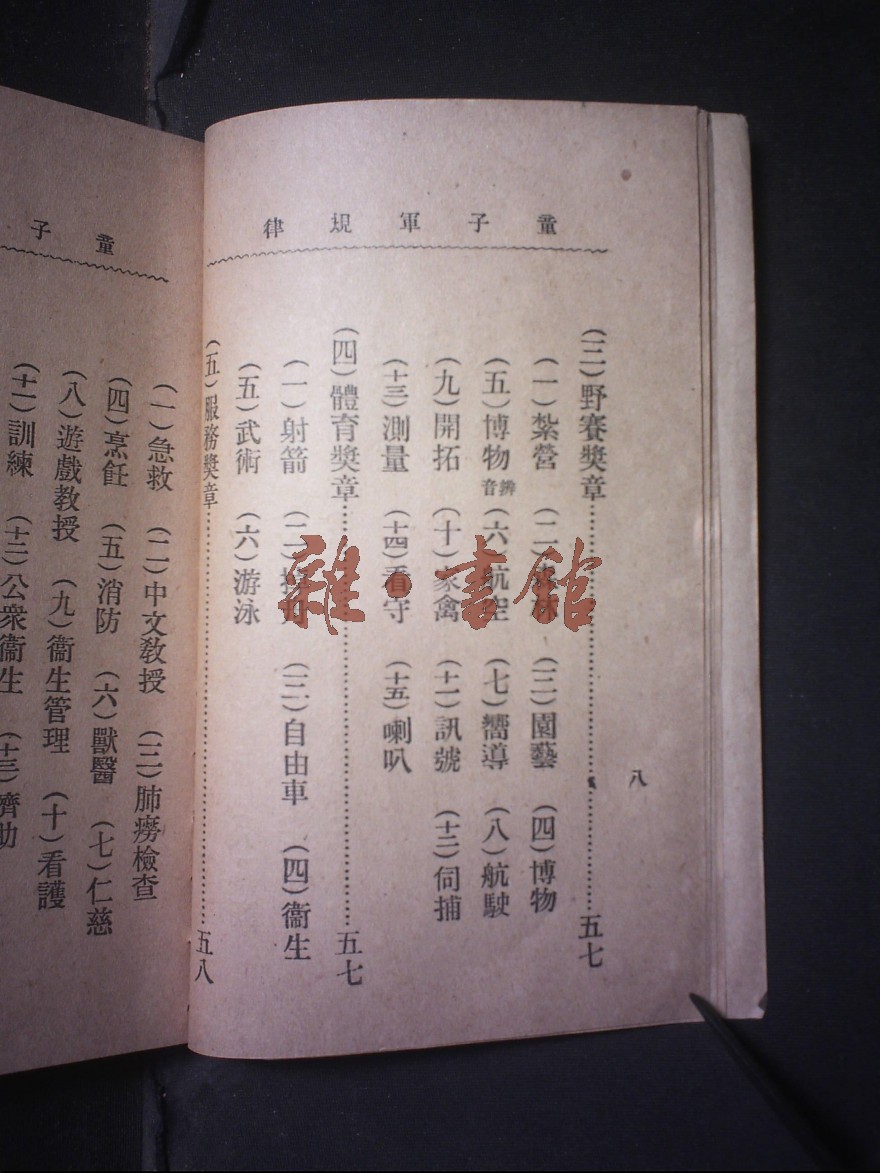 童子軍規律
八
(三)野賽獎章……五七
(一)紮營 (二) (三)園藝 (四)博物
(五)博物辨音 (六)航空 (七)嚮導 (八)航駛
(九)開拓 (十)家禽 (十一)訊號 (十二)伺捕
(十三)測量 (十四)看守 (十五)喇叭
(四)體育獎章……五七
(一)射箭 (二) (三)自由車 (四)衞生
(五)武術 (六)游泳
(五)服務獎章……五八
童子
(一)急救 (二)中文教授 (三)肺癆檢查
(四)烹飪 (五)消防 (六)獸醫 (七)仁慈
(八)遊戲教授 (九)衞生管理 (十)看護
(十一)訓練 (十二)公衆衞生 (十三)濟助
雜·書館